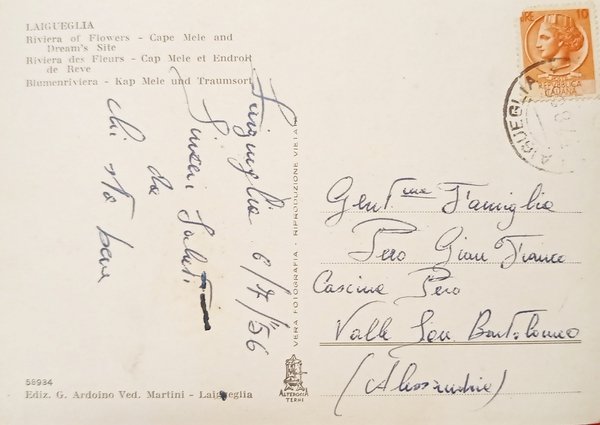 LAIGUEGLIA
Riviera of Flowers - Cape Mele and
Dream's Site
Riviera des Fleurs - Cap Mele et Endroit
de Reve
Blumenriviera - Kap Mele und Traumsort
Laigueglia 6/7/'56
Sinceri Saluti
da
chi sta bene
VERA FOTOGRAFIA - RIPRODUZIONE VIETATA
LIRE 10
REPUBBLICA
ITALIANA
LAIGUEGLIA
Gent.me Famiglia
Pero Gian Franco
Cascina Pero
Valle San Bartolomeo
(Alessandria)
58934
Ediz. G. Ardoino Ved. Martini - Laigueglia
ALTEROCCA
TERNI